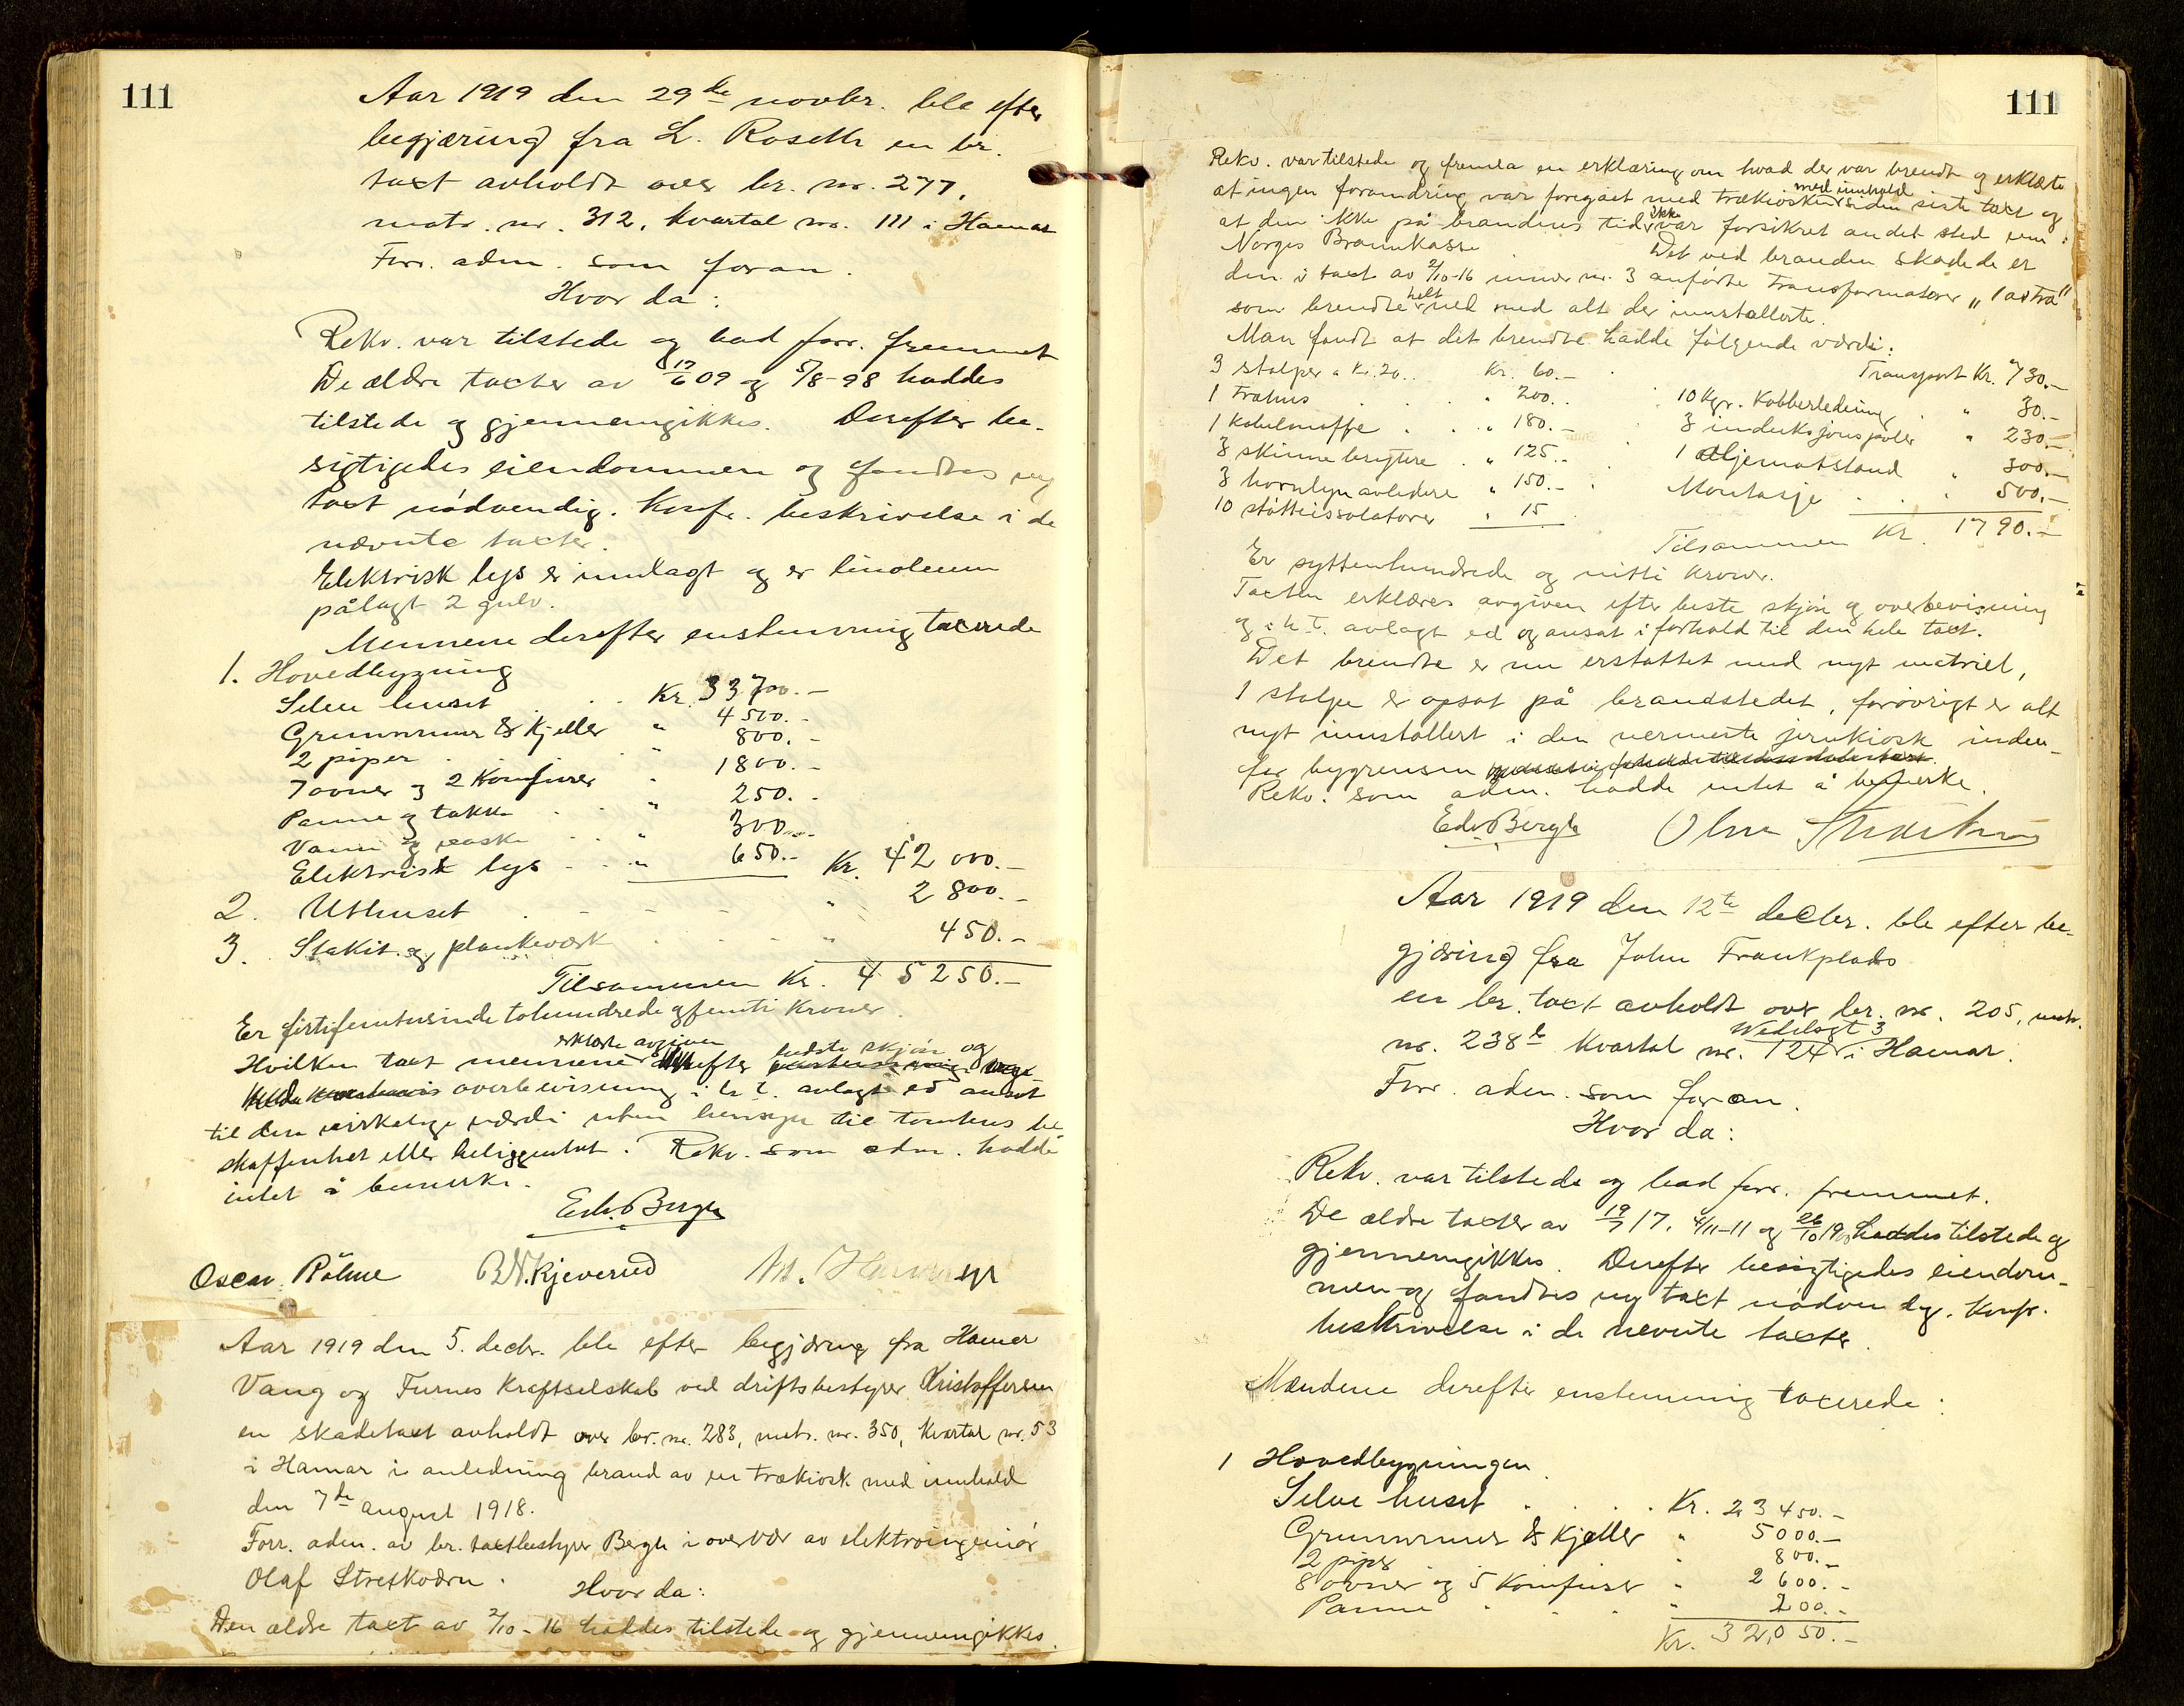 111
Aar 1919 den 29de novbr. ble efter
begjæring fra L. Roseth en br.
taxt avholdt over br. nr. 277,
matr. nr. 312, kvartal nr. 111 i Hamar
Forr. adm. som foran.
Hvor da:
Rekv. var tilstede og bad forr. fremmet
De ældre taxter av 17/6 09 og 5/8-98 haddes
tilstede og gjennemgikkes. Derefter be-
sigtigedes eiendommen og fandtes ny
taxt nødvendig. Konfr. beskrivelse i de
nævnte taxter.
Elektrisk lys er innlagt og er linoleum
pålagt 2 gulv.
Mennene derefter enstemmig taxerede
1. Hovedbygning
Selve huset . . Kr. 33700.-
Grunnmur & Kjeller " 4500.-
2 piper . " 800.-
7 ovner og 2 Komfurer " 1800.-
Panne og takke . . " 250.-
Vann og vaske . . " 300.-
Elektrisk lys . . " 650.- Kr. 42000.-
2. Uthuset . - - - " 2800.-
3. Stakit og plankeværk . . . " 450.-
Tilsammen Kr. 45250.-
Er førtifemtusinde tohundrede og femti Kroner.
Hvilken taxt mennene erklærte avgiven efter bedste skjøn og
overbevisning i h.t. avlagt ed ansat
til den virkelige værdi uten hensyn til tomtens be
skaffenhet eller beliggenhet. Rekv. som adm. hadde
intet å bemerke.
Edv. Bergh
Oscar Rølme B.N. Kjeverud
Aar 1919 den 5. decbr. ble efter begjæring fra Hamar
Vang og Furnes Kraftselskab ved driftsbestyrer Kristoffersen
en skadetaxt avholdt over br. nr. 283, matr. nr. 350, Kvartal nr. 53
i Hamar i anledning brand av en trækiosk med innhold
den 7de august 1918.
Forr. adm. av br. taxtbestyrer Bergh i overvær av elektroingeniør
Olaf Stretkværn. Hvor da:
Den ældre taxt av 2/10-16 haddes tilstede og gjennemgikkes.
111
Rekv. var tilstede og fremla en erklæring om hvad der var brendt og erklærte
at ingen forandring var foregået med trækiosken med innhold siden siste taxt og
at den ikke på brandens tid ikke var forsikret andet sted enn i
Norges Brannkasse . Det ved branden skadede er
den i taxt av 2/10-16 under nr. 3 anførte Transformator "
som brendte helt ned med alt der innstallerte.
Man fandt at det brendte hadde følgende værdi:
3 stolper a Kr. 20.. Kr. 60.- Transport Kr. 730.-
1 træhus . . . " 200.. 10 Kgr. Kobberledning . " 30.-
1 kabelmuffe . . " 180.- 3 induksjonspoler " 230.-
3 skinnebrytere . " 125.. 1 oljemotstand " 300.-
3 hornlynavledere " 150.- Montasje . . " 500.-
10 støtteissolatorer " 15
Tilsammen Kr. 1790.-
Er syttenhundrede og nitti kroner.
Taxten erklæres avgiven efter beste skjøn og overbevisning
og i h.t. avlagt ed og ansat i forhold til den hele taxt.
Det brendte er nu erstattet med nyt matriel,
1 stolpe er opsat på brandstedet, forøvrigt er alt
nyt innstallert i den nermeste jernkiosk inden-
for bygrensen
Rekv. som adm. hadde intet å bemerke.
Edv. Bergh
Aar 1919 den 12te decbr. ble efter be-
gjæring fra John Frankplads
en br. taxt avholdt over br. nr. 205, matr.
nr. 238b Kvartal nr. 124 i Hamar. Vedlagt 3
Forr. adm. som foran.
Hvor da:
Rekv. var tilstede og bad forr. fremmet.
De ældre taxter av 19/7 17, 4/11-11 og 26/10 19, haddes tilstede og
gjennemgikkes. Derefter besigtigedes eiendom-
men og fandtes ny taxt nødvendig. Konfr.
beskrivelse i de nevnte taxter.
Mændene derefter enstemmig taxerede:
1 Hovedbygningen
Selve huset . . . . Kr. 23450.-
Grunnmur & Kjeller " 5000.-
2 piper " 800.-
8 ovner og 5 Komfurer " 2600.-
Panne . . . " 200.-
Kr. 32,050.-